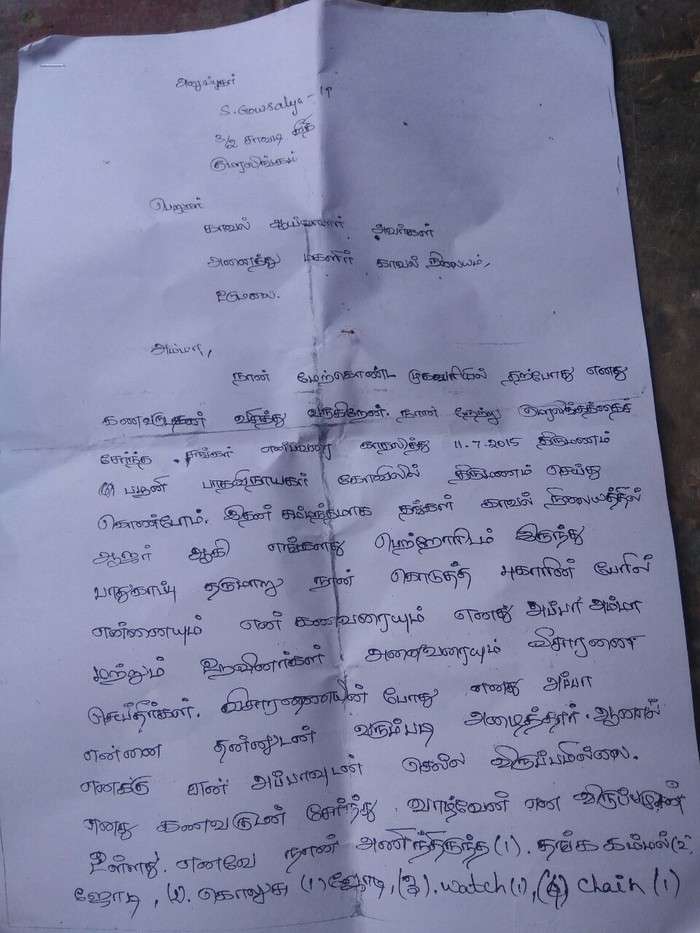 அனுப்புநர்
S. Gowsalya - 19
3/2 சாவடி வீதி
குமரலிங்கம்
பெறுநர்
காவல் ஆய்வாளர் அவர்கள்
அனைத்து மகளிர் காவல் நிலையம்,
உடுமலை.
அம்மா,
நான் மேற்கொண்ட முகவரியில் தற்போது எனது
கணவருடன் வசித்து வருகிறேன். நான்
சேர்ந்த சங்கர் என்பவரை காதலித்து 11-7-2015 திருமணம்
பழனி பாதவிநாயகர் கோவிலில் திருமணம் செய்து
கொண்டோம். இதன் சம்மந்தமாக தங்கள் காவல் நிலையத்தில்
ஆஜர் ஆகி எங்களது பெற்றோரிடம் இருந்து
பாதுகாப்பு தருமாறு நான் கொடுத்த புகாரின் பேரில்
என்னையும் என் கணவரையும் எனது அப்பா அம்மா
மற்றும் உறவினர்கள் அனைவரையும் விசாரணை
செய்தீர்கள். விசாரணையின் போது எனது அப்பா
என்னை தன்னுடன் வரும்படி அழைத்தார். ஆனால்
எனக்கு என் அப்பாவுடன் செல்ல விருப்பமில்லை.
எனது கணவருடன் சேர்ந்து வாழ்வேன் என விருப்பமுடன்
உள்ளது. எனவே நான் அணிந்திருந்த (1). தங்க கம்மல் (2
ஜோடி, (2). கொலுசு (1) ஜோடி, (3). watch (1), (4) chain (1)